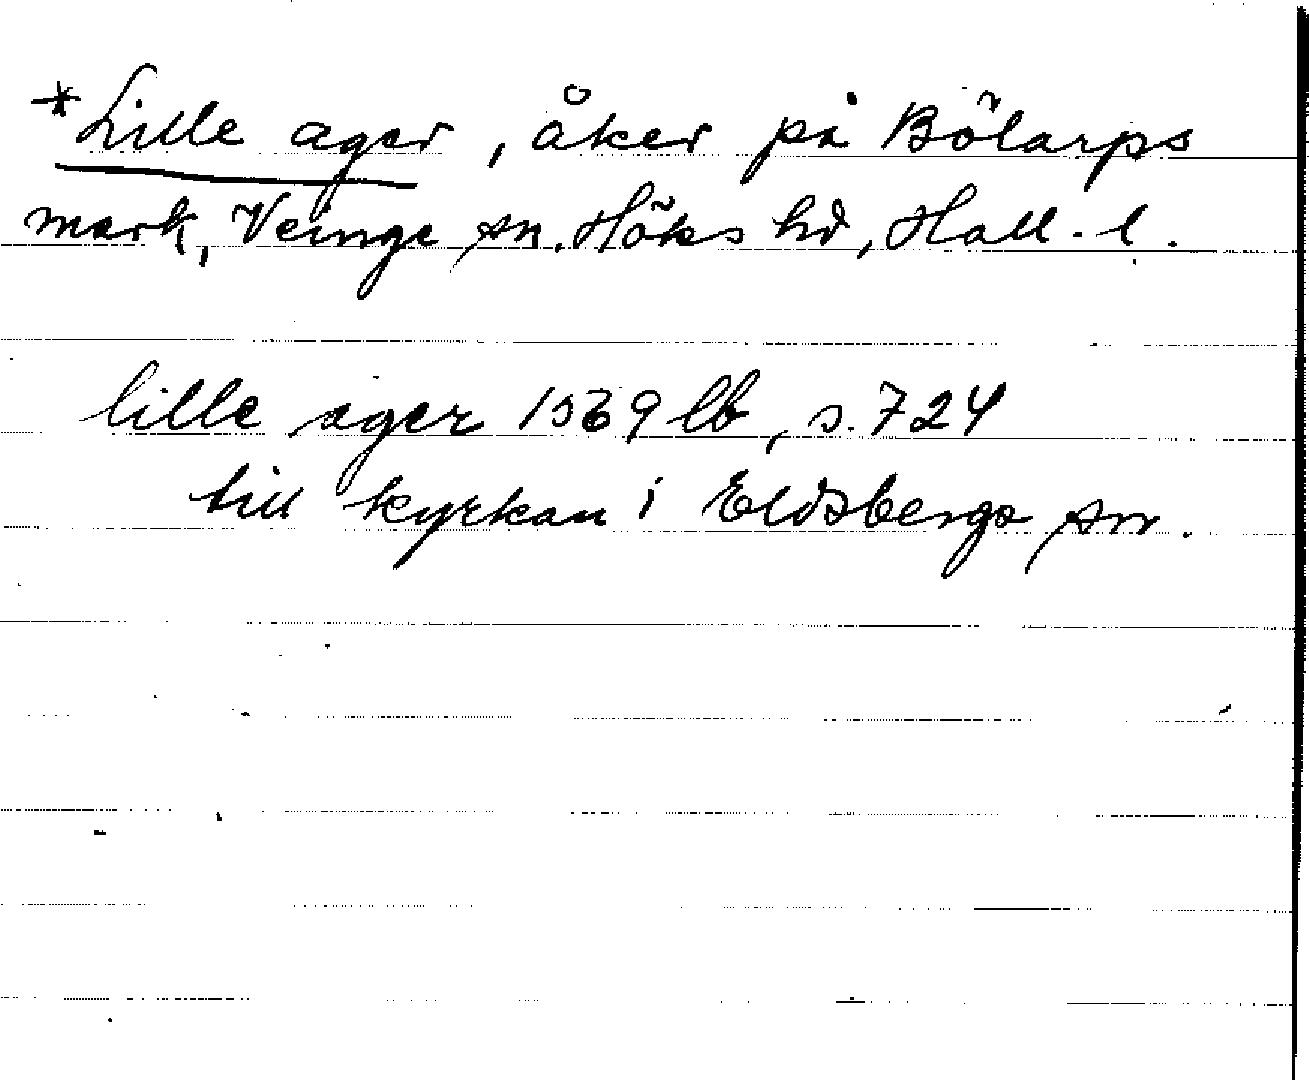 *Lille ager, åker på Bölarps
mark, Veinge sn. Höks hd, Hall. l.
lille ager 1569 lb, s. 724
till kyrkan i Eldsbergs sn.